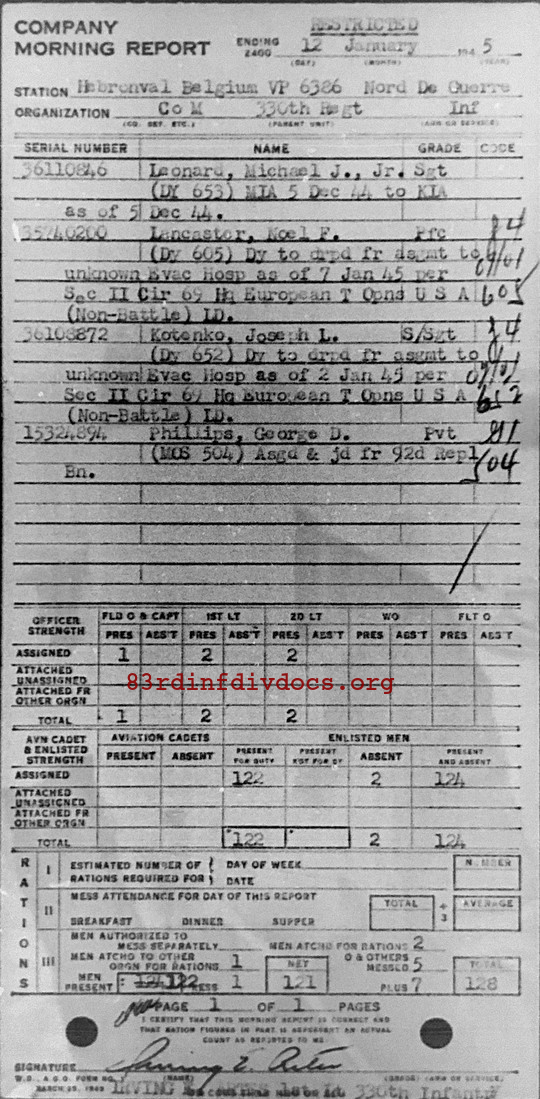 RESTRICTED
COMPANY
MORNING REPORT
ENDING 2400 12 January 1945
(DAY) (MONTH) (YEAR)
STATION Hebronval Belgium VP 6386 Nord De Guerre
ORGANIZATION Co M 330th Regt Inf
(CO. DET. ETC.) (PARENT UNIT) (ARM OR SERVICE)
SERIAL NUMBER NAME GRADE CODE
36110846 Leonard, Michael J., Jr. Sgt
(DY 653) MIA 5 Dec 44 to KIA
as of 5 Dec 44.
35740200 Lancaster, Noel F. Pfc
(Dy 605) Dy to drpd fr asgmt to
unknown Evac Hosp as of 7 Jan 45 per
Sec II Cir 69 Hq European T Opns U S A 605
(Non-Battle) LD.
36108872 Kotenko, Joseph L. S/Sgt
(Dy 652) Dy to drpd fr asgmt to
unknown Evac Hosp as of 2 Jan 45 per
Sec II Cir 69 Hq European T Opns U S A 652
(Non-Battle) LD.
15324894 Phillips, George D. Pvt
(MOS 504) Asgd & jd fr 92d Repl 504
Bn.
OFFICER STRENGTH FLD O & CAPT 1ST LT 2D LT WO FLT O
PRES ABS'T PRES ABS'T PRES ABS'T PRES ABS'T PRES ABS'T
ASSIGNED 1 2 2
ATTACHED UNASSIGNED
83rdinfdivdocs.org
ATTACHED FR OTHER ORGN
TOTAL 1 2 2
AVN CADET & ENLISTED STRENGTH AVIATION CADETS ENLISTED MEN
PRESENT ABSENT PRESENT FOR DUTY PRESENT NOT FOR DY ABSENT PRESENT AND ABSENT
ASSIGNED 122 2 124
ATTACHED UNASSIGNED
ATTACHED FR OTHER ORGN
TOTAL 122 2 124
RATIONS
I ESTIMATED NUMBER OF DAY OF WEEK NUMBER
RATIONS REQUIRED FOR DATE
II MESS ATTENDANCE FOR DAY OF THIS REPORT TOTAL ÷ 3 AVERAGE
BREAKFAST DINNER SUPPER
III MEN AUTHORIZED TO MESS SEPARATELY MEN ATCHD FOR RATIONS 2
MEN ATCHD TO OTHER ORGN FOR RATIONS 1 NET O & OTHERS MESSED 5 TOTAL
MEN PRESENT 122 LESS 1 121 PLUS 7 128
PAGE 1 OF 1 PAGES
I CERTIFY THAT THIS MORNING REPORT IS CORRECT AND
THAT RATION FIGURES IN PART III REPRESENT AN ACTUAL
COUNT AS REPORTED TO ME
SIGNATURE
W.D., A.G.O. FORM NO. 1 (NAME) (GRADE) (ARM OR SERVICE)
MARCH 23, 1943
IRVING 1st Lt 330th Infantry